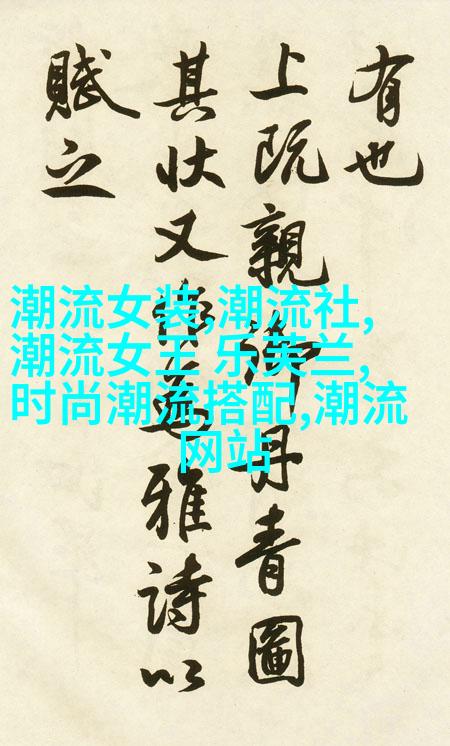 有也
上既親御丹青圖
其状又雅詩以
賦之
潮流女装,潮流社,
潮流女王 乐芙兰,
时尚潮流,搭配,潮流
网站